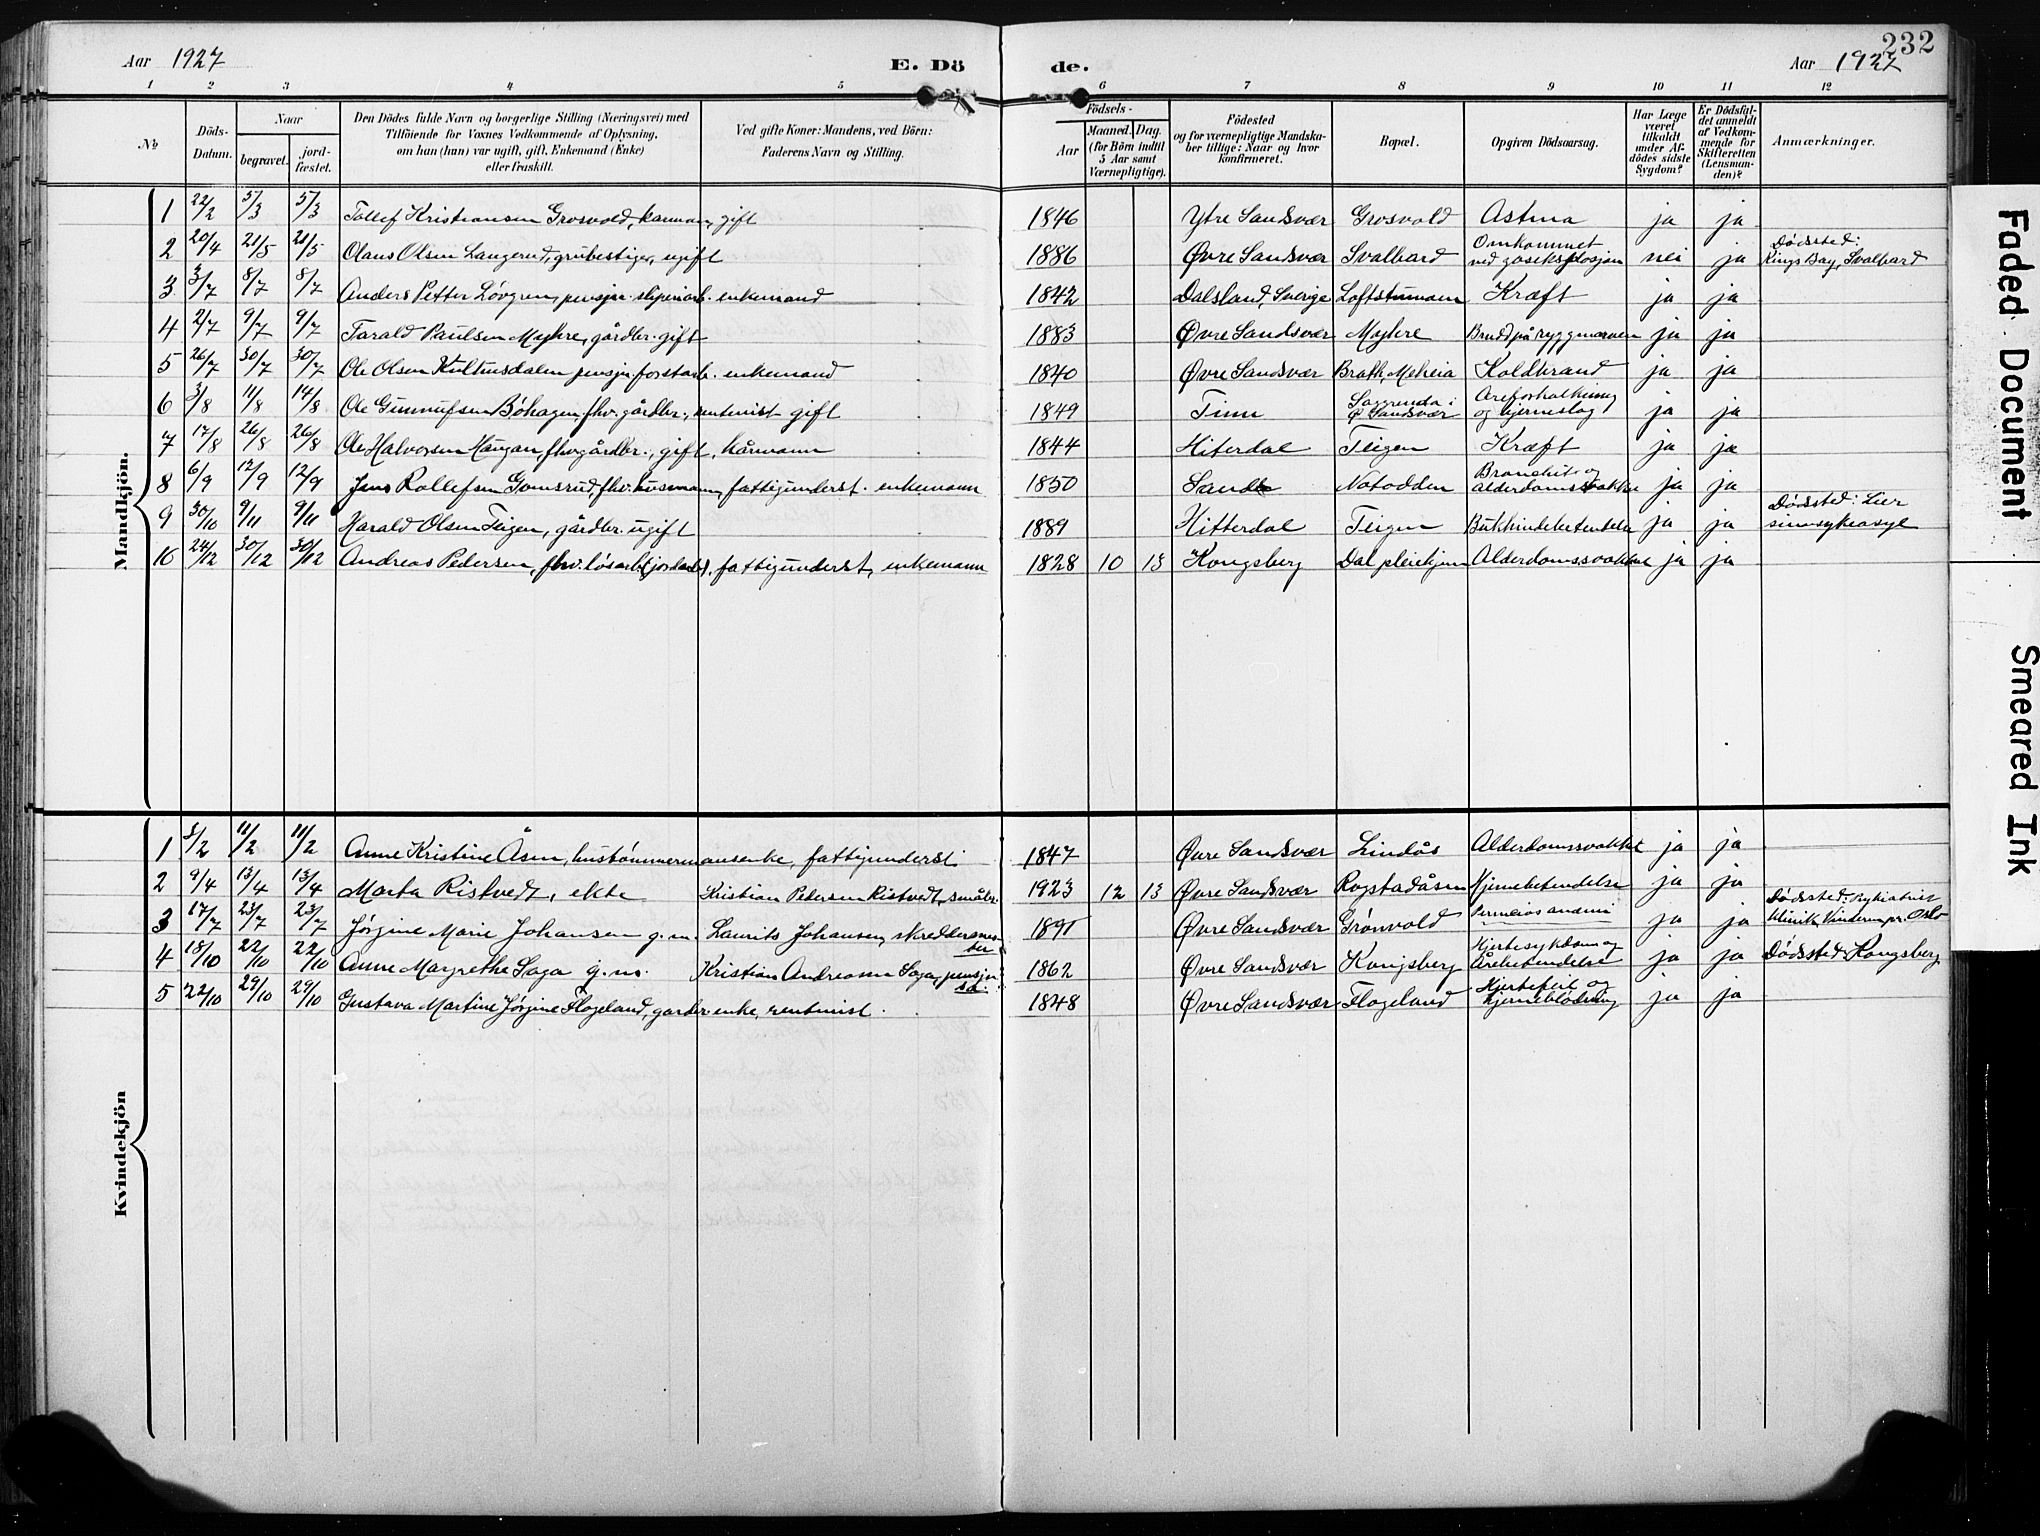 232
Aar 1927 E. Dö de. Aar 1927
1 2 3 4 5 6 7 8 9 10 11 12
№
Döds-Datum.
Naar
begravet.
jord-fæstet.
Den Dödes fulde Navn og borgerlige Stilling (Næringsvei) med
Tilföiende for Voxnes Vedkommende af Oplysning,
om han (hun) var ugift, gift, Enkemand (Enke)
eller fraskilt.
Ved gifte Koner: Mandens, ved Börn:
Faderens Navn og Stilling.
Födsels-
Aar
Maaned. Dag.
(for Börn indtil
5 Aar samt
Værnepligtige).
Födested
og for værnepligtige Mandska-
ber tillige: Naar og hvor
Konfirmeret.
Bopæl.
Opgiven Dödsaarsag.
Har Læge
været
tilkaldt
under Af-
dödes sidste
Sygdom?
Er Dödsfal-
det anmeldt
af Vedkom-
mende for
Skifteretten
(Lensman-
den)?
Anmærkninger.
Mandkjön.
1 22/2 5/3 5/3 Tollef Kristiansen Grosvold, kaarmann, gift 1846 Ytre Sandsvær Grosvold Astma ja ja
2 20/4 21/5 21/5 Olaus Olsen Langerud, grubestiger, ugift 1886 Øvre Sandsvær Svalbard Omkommet ved gaseksplosjon nei ja Dødsted: Kings Bay, Svalbard
3 3/7 8/7 8/7 Anders Petter Lövgren, pensjon. sliperiarb. enkemand 1842 Dalsland, Sverige Loftstumoen Kræft ja ja
4 2/7 9/7 9/7 Tarald Paulsen Myhre, gårdbr. gift 1883 Øvre Sandsvær Myhre Brudd på ryggmarven ja ja
5 26/7 30/7 30/7 Ole Olsen Kultusdalen pensjon. forstarb. enkemand 1840 Øvre Sandsvær Brath, Meheia Koldbrand ja ja
6 3/8 11/8 14/8 Ole Gunnufsen Böhagen, fhv. gårdbr., rentenist gift 1849 Tinn Saggrenda i Ø Sandsvær Areforkalkning og hjerneslag ja ja
7 17/8 26/8 26/8 Ole Halvorsen Haugan, fhv. gårdbr., gift, kårmann 1844 Hiterdal Teigen Kræft ja ja
8 6/9 12/9 12/9 Jens Rollefsen Gomsrud, fhv. husmann, fattigunderst. enkemann 1850 Sande Notodden Bronchit og alderdomssvakke ja ja
9 30/10 9/11 9/11 Harald Olsen Teigen, gårdbr. ugift 1889 Hitterdal Teigen Bukhindebetendelse ja ja Dødsted: Lier sinnsykeasyl
10 24/12 30/12 30/12 Andreas Pedersen, fhv. løsarb. (jordarb), fattigunderst, enkemann 1828 10 13 Kongsberg Dal pleiehjem Alderdomssvakhet ja ja
Kvindekjön
1 5/2 11/2 11/2 Anne Kristine Åsen, hustømmermansenke, fattigunderst 1847 Øvre Sandsvær Lindås Alderdomssvakhet ja ja
2 9/4 13/4 13/4 Marta Ristvedt, ekte Kristian Pedersen Ristvedt, småbr. 1923 12 13 Øvre Sandsvær Rogstadåsen Hjernebetendelse ja ja
3 17/7 23/7 23/7 Jørgine Marie Johansen g. m. Laurits Johansen, skreddermester 1891 Øvre Sandsvær Grønvold Perniciøs anæmi ja ja Dødsted: Psykiatrisk klinik, Vinderen pr. Oslo
4 18/10 22/10 22/10 Anne Magrethe Saga g. m. Kristian Andreassen Saga, pensjon 1862 Øvre Sandsvær Kongsberg Hjertesykdom og Årebetendelse ja ja Dødssted: Kongsberg
5 22/10 29/10 29/10 Gustava Martine Jørgine Flogeland, gardbr. enke, rentenist. 1848 Øvre Sandsvær Flogeland Hjertefeil og hjerneblødning ja ja
Faded Document
Smeared Ink